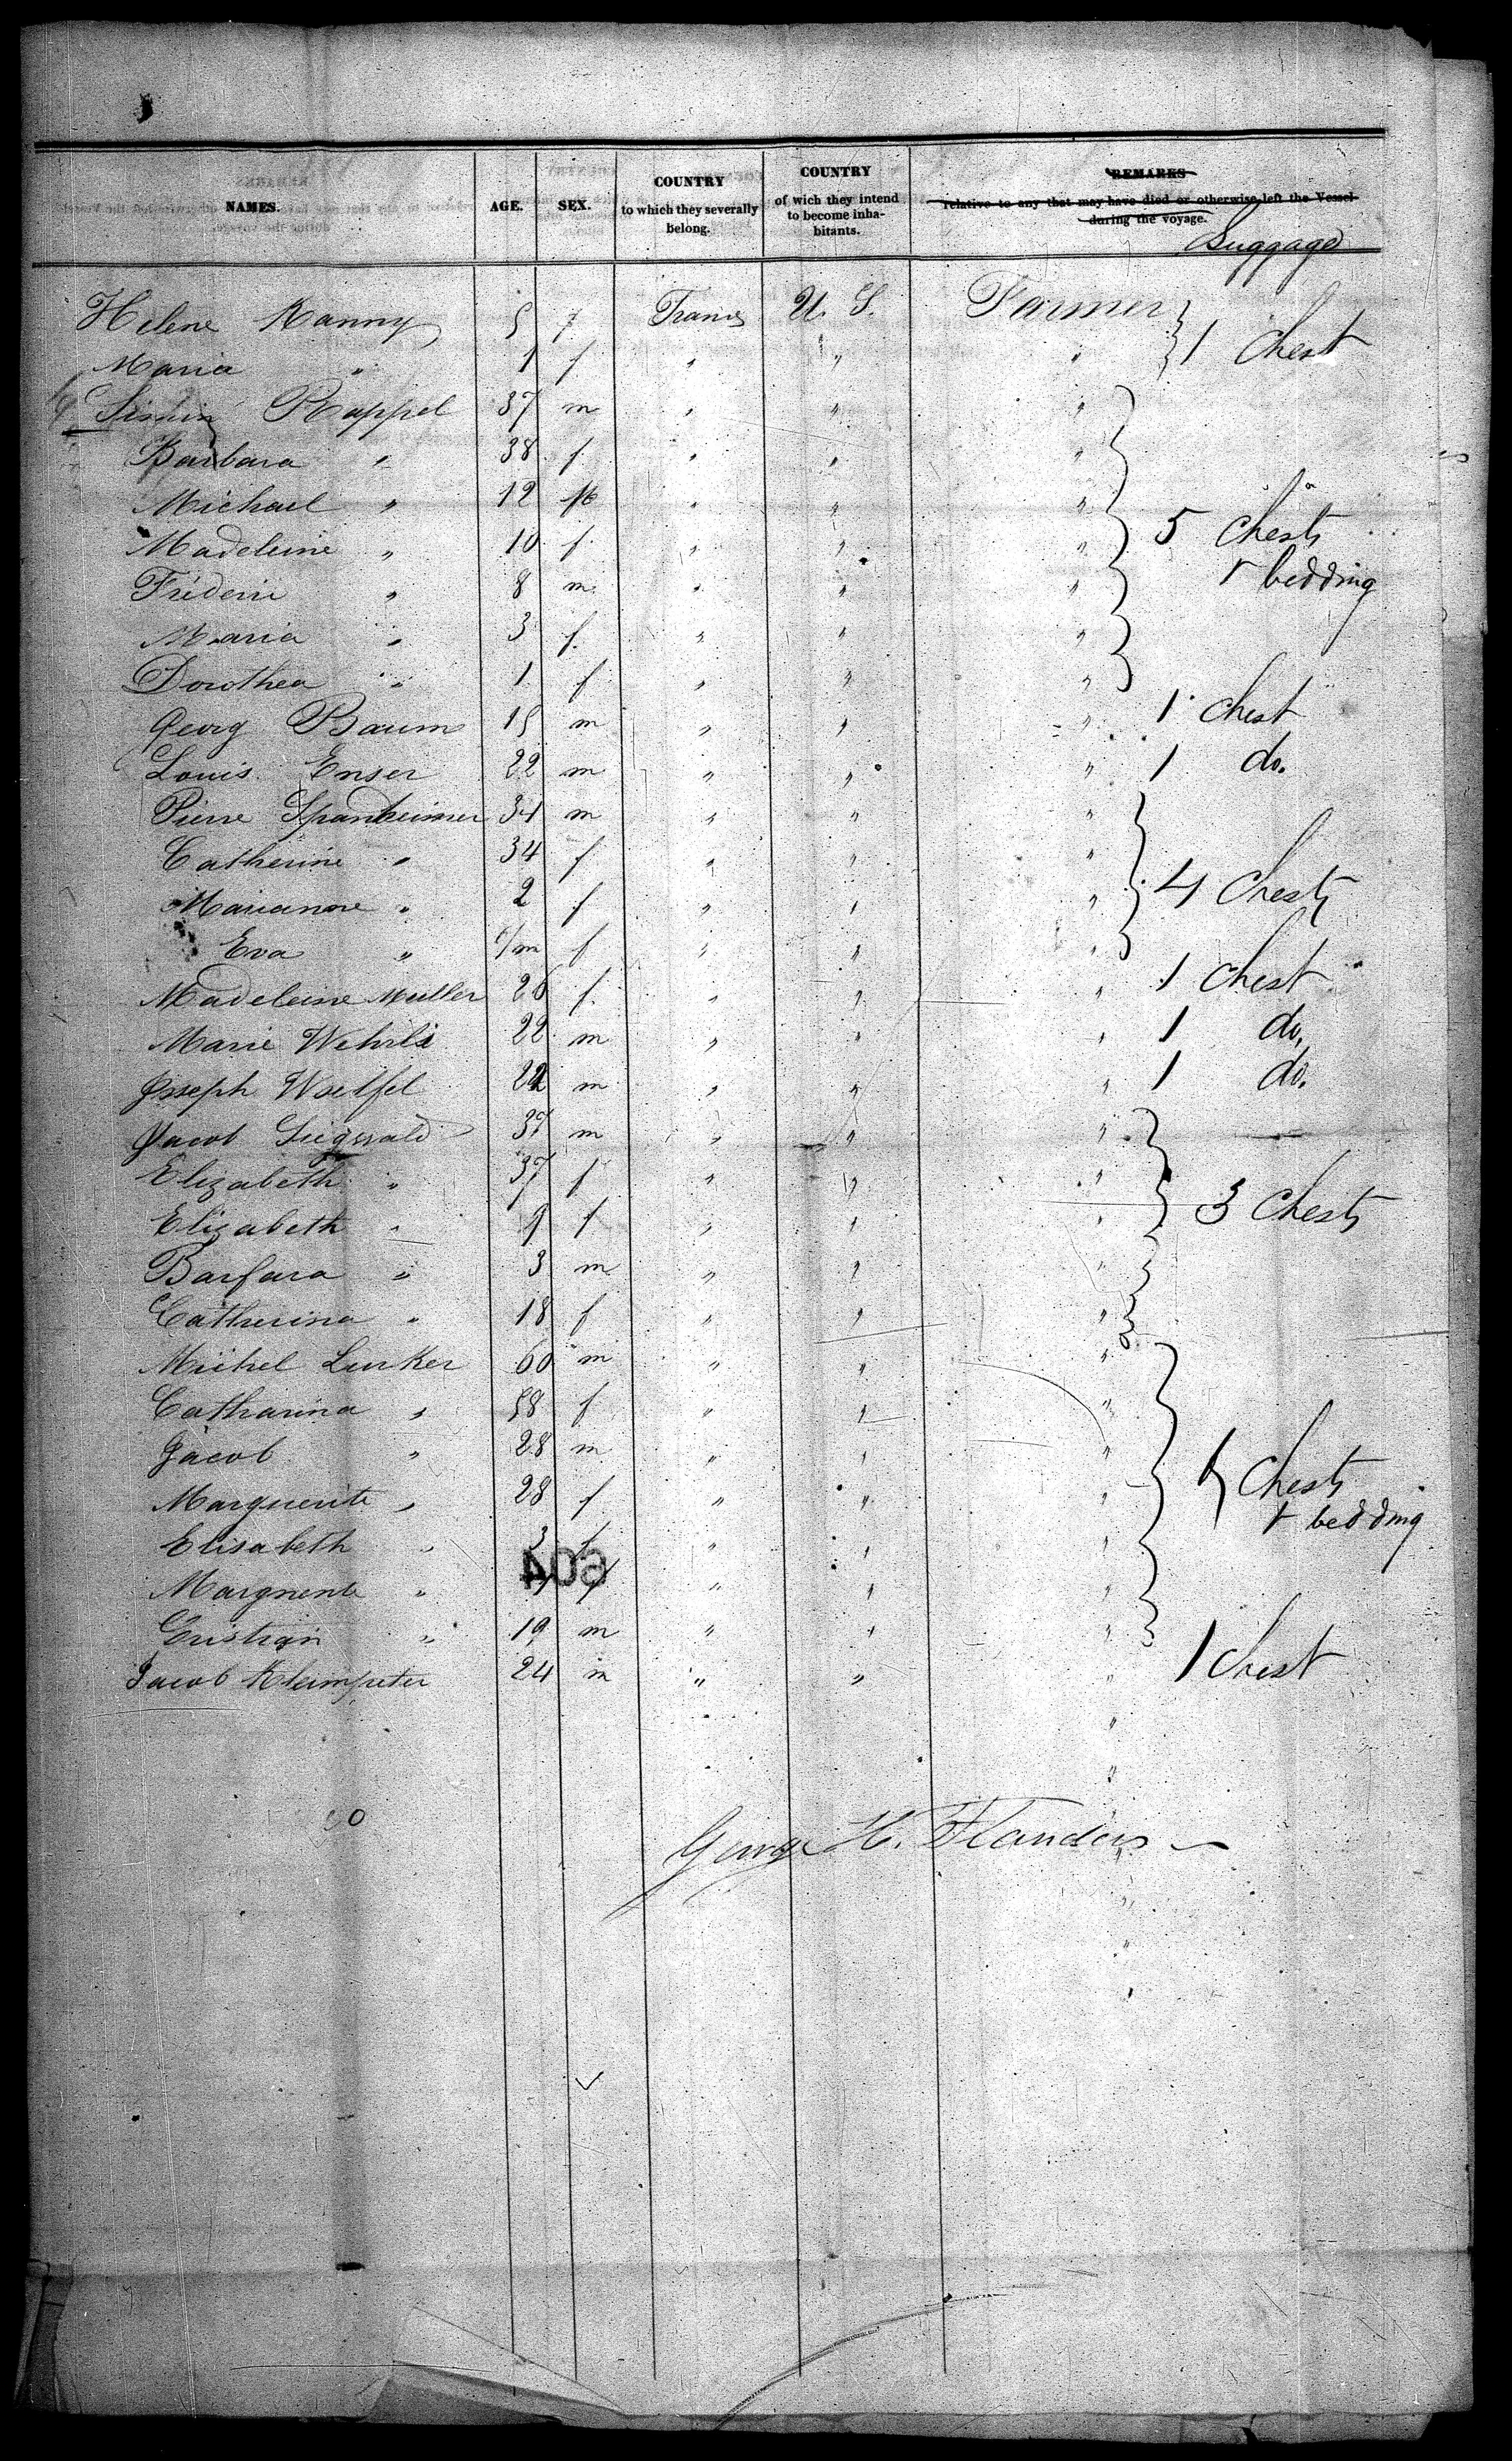 NAMES. AGE. SEX. COUNTRY to which they severally belong. COUNTRY of wich they intend to become inhabitants. REMARKS relative to any that may have died or otherwise left the Vessel during the voyage.
Luggage
Helene Kanny 5 f France U. S. Farmer 1 Chest
Maria " 1 f " " "
Simin Rappel 37 m " " "
Barbara " 38 f " " "
Michael " 12 m " " "
Madeleine " 10 f " " " 5 Chests
Fréderic " 8 m " " " + bedding
Maria " 3 f " " "
Dorothea " 1 f " " "
Georg Baum 15 m " " " 1 Chest
Louis Enser 22 m " " " 1 do.
Pierre Spanheimer 34 m " " "
Catherine " 34 f " " "
Marianne " 2 f " " " 4 Chests
Eva " /m f " " "
Madeleine Muller 26 f " " " 1 Chest
Marie Wehrli 22 m " " " 1 do.
Joseph Woelfel 22 m " " " 1 do.
Jacob Siegwald 37 m " " "
Elizabeth " 37 f " " "
Elizabeth " 9 f " " " 3 Chests
Barbara " 3 m " " "
Catherina " 18 f " " "
Michel Lurker 60 m " " "
Catharina " 58 f " " "
Jacob " 28 m " " " 6 Chests
Marguerite " 28 f " " " + bedding
Elisabeth " 3 f " " "
604
Marguerite " f " " "
Cristian " 19 m " " "
Jacob Kleimpeter 24 m " " " 1 Chest
"
"
George H. Flanders
"
"